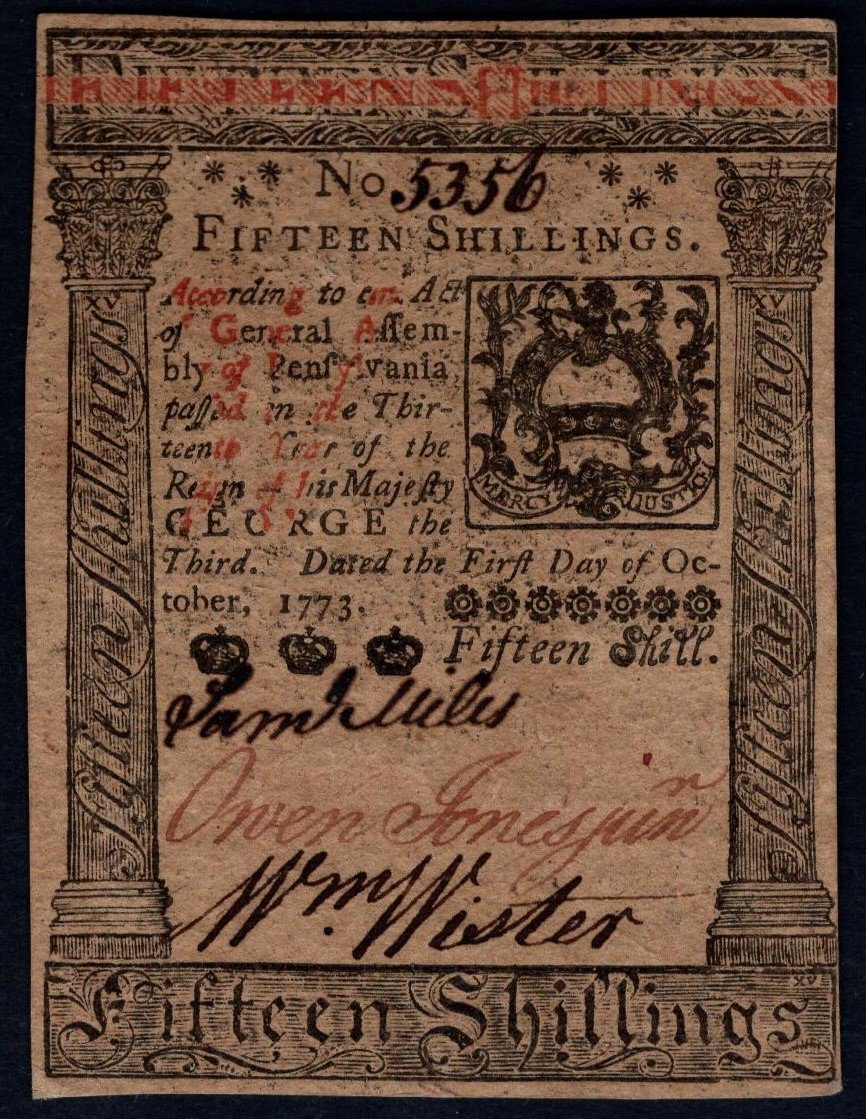 FIFTEEN SHILLINGS
No 5356
FIFTEEN SHILLINGS.
XV
XV
According to an Act
of General Aſſem-
bly of Penſylvania,
paſſed in the Thir-
teenth Year of the
Reign of his Majeſty
GEORGE the
Third. Dated the Firſt Day of Oc-
tober, 1773.
MERCY JUSTICE
Fifteen Shill.
Fifteen Shillings
Fifteen Shillings
Saml Miles
Owen Jones junr
Wm. Wister
XV
Fifteen Shillings